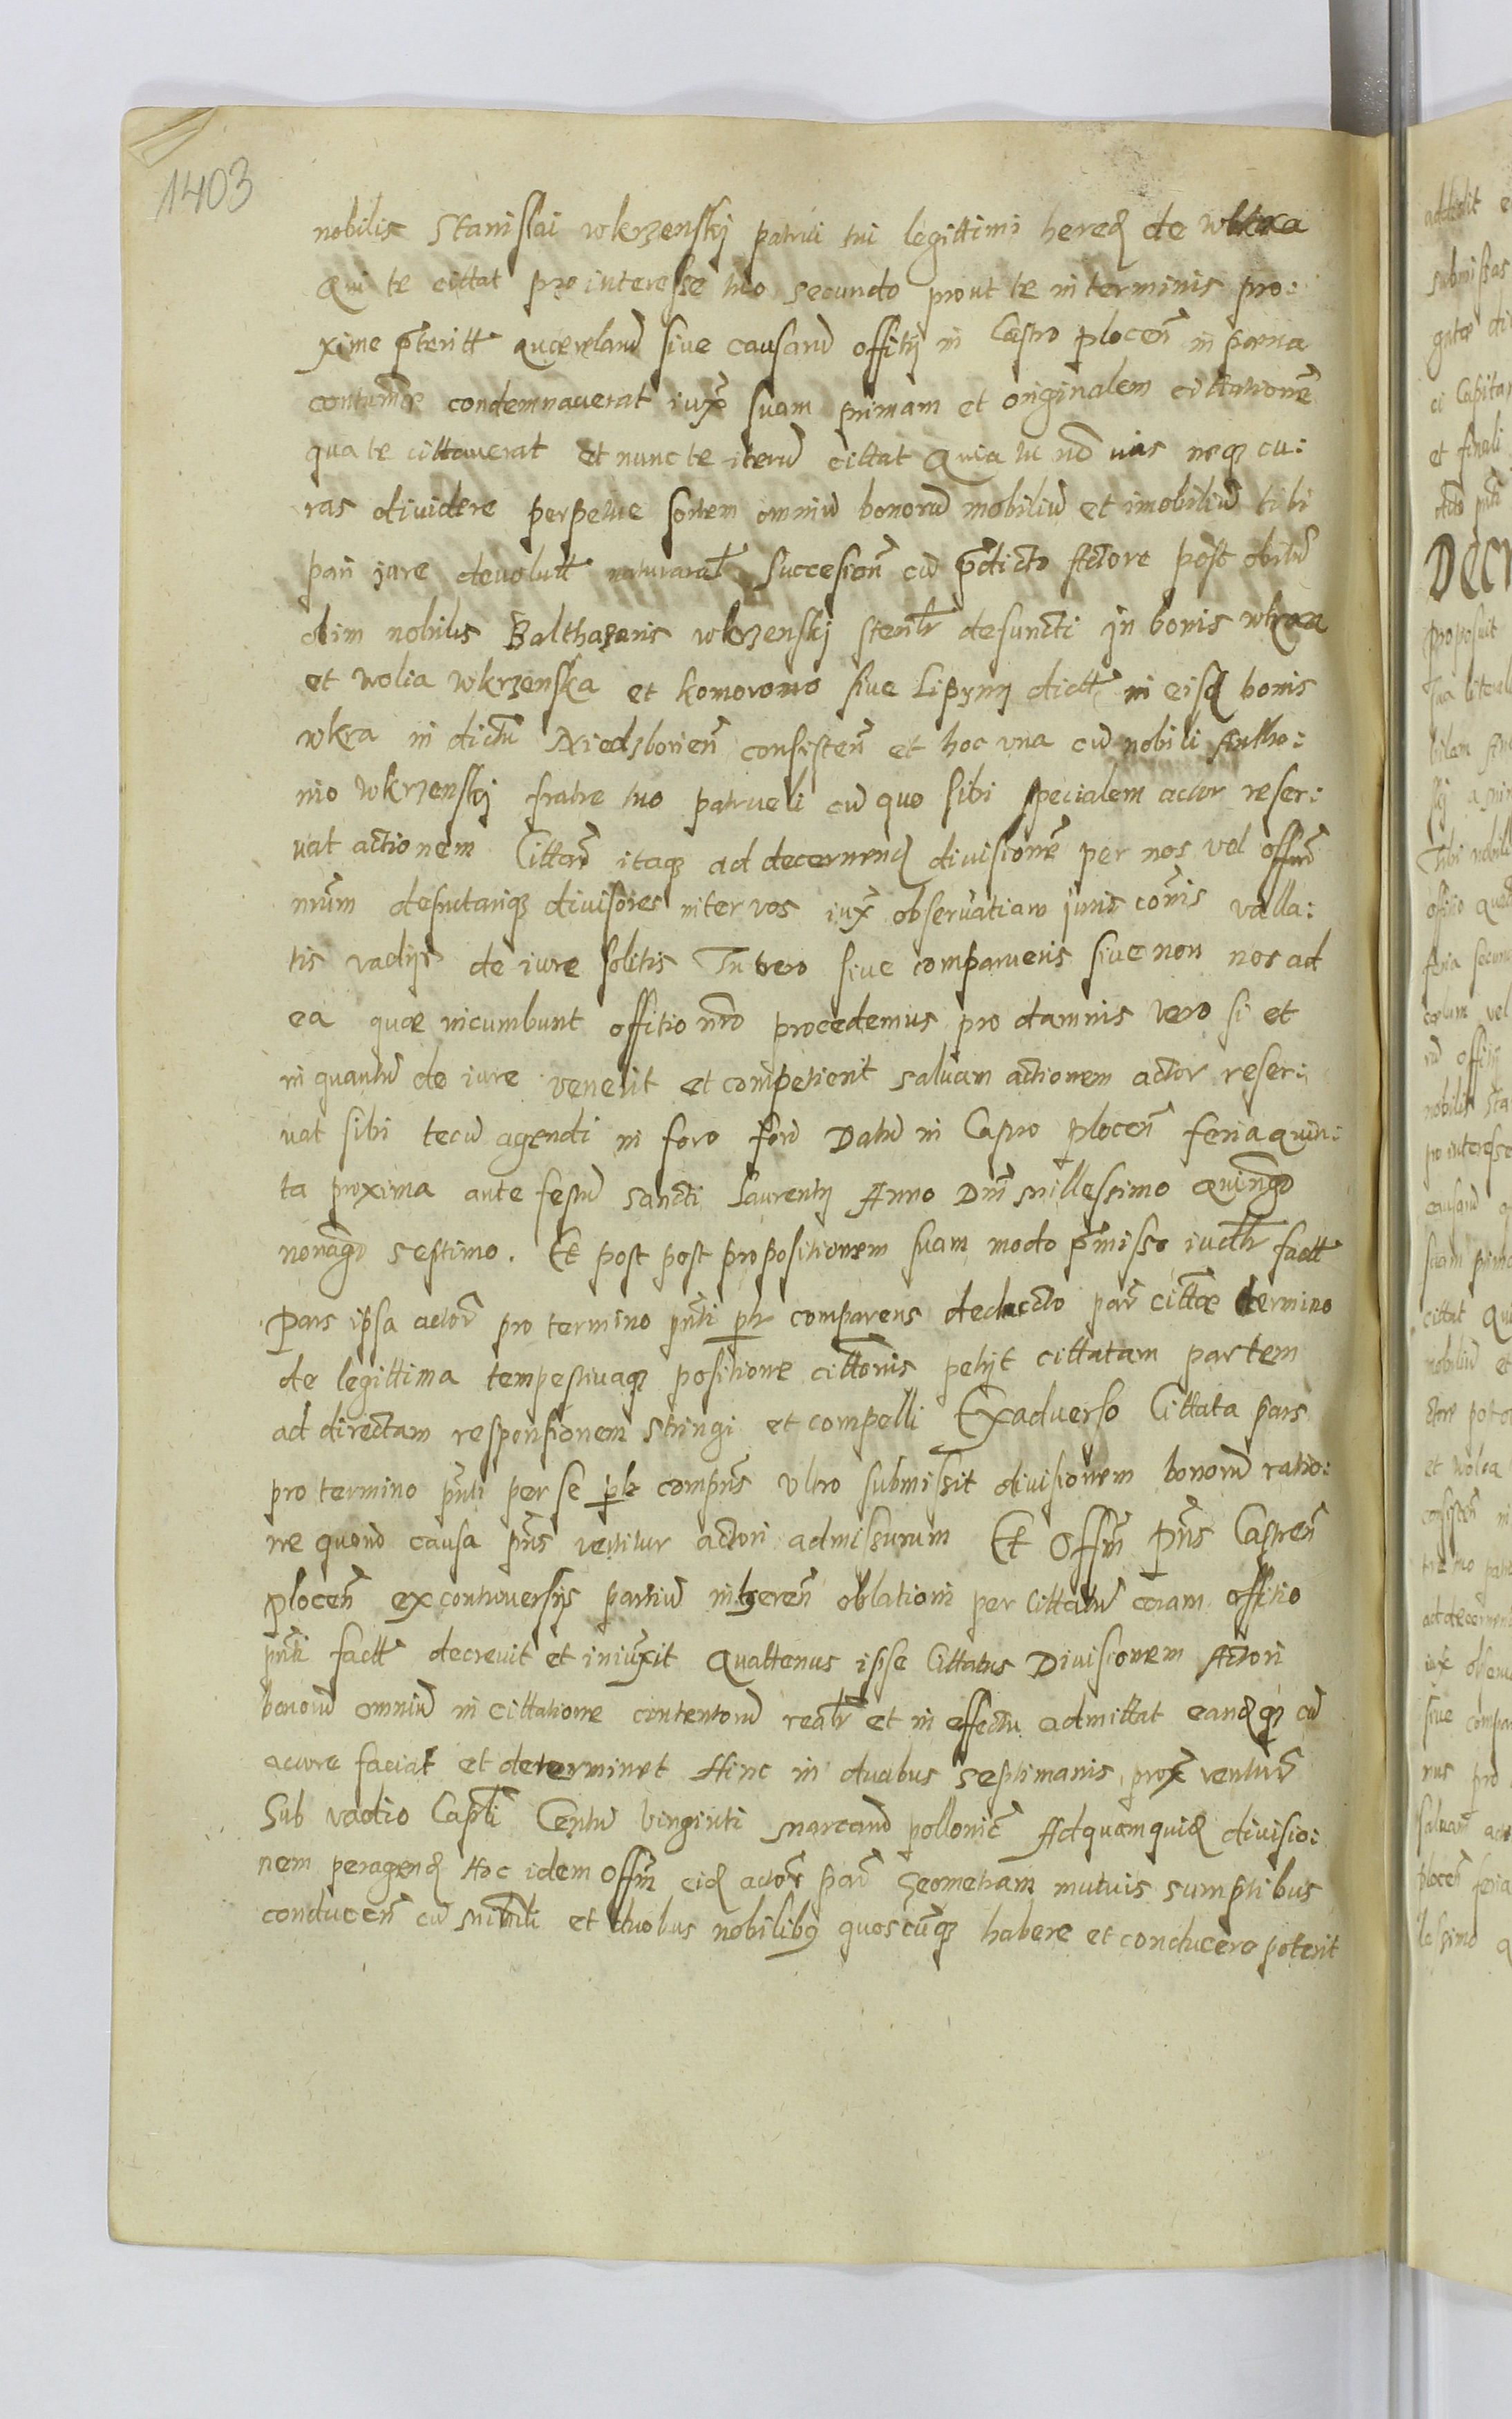 1403
nobilis Stanislai wkrzenskj patrui tui legittimi hered de wkra
Qui te cittat pro interesse tuo secundo prout te in terminis pro:
xime pteritt querelarū sive causarū offitij in Castro plocen in pœna
contumā condemnaverat iux suam primam et originalem cittationē
qua te cittaverat et nunc te iterū cittat Quia tu nō vis neqz cu:
ras dividere perpetue sortem omniū bonorū mobiliū et imobiliū tibi
pari jure devolutt naturaral Succesion cū pdicto Actore post obitū
olim nobilis Balthazaris wkrzenskj sterilr defuncti jn bonis wkra
et wolia wkrzenska et komorowo sive Lipyny dictt in eisd bonis
wkra in dictū Niedzborien consisten et hoc una cū nobili Antho:
nio wkrzenskj fratre tuo patrueli cū quo sibi specialem actor reser:
vat actionem Cittarē itaqz ad decernend divisionē per nos vel offm
nrum deputariqz divisores inter vos iux observatiam juris cōmis valla:
tis vadijs de iure solitis Tu vero sive comparueris sive non nos ad
ea quæ incumbunt offitio nrō procedemus pro damnis vero si et
in quantū de iure venerit et competierit salvam actionem actor reser:
vat sibi tecū agendi in foro fori Datū in Castro plocen feria quin:
ta proxima ante festū Sancti Laurentij Anno Dnī millessimo Quingō
nonagō septimo. Et post post propositionem suam modo pmisso iudtr factt
Pars ipsa actor pro termino pnti plr comparens deducto par cittæ termino
de legittima tempestivaqz positione cittōnis petijt cittatam partem
ad directam responsionem stringi et compelli Exadverso Cittata pars
pro termino pnti per se plr compns ultro submissit divisionem bonorū ratio:
ne quorū causa pns vertitur actori admissurum Et Offm pns Castren
plocen ex controversijs partiū inheren oblationi per Cittatū coram offitio
pnti factt decrevit et iniunxit Quattenus ipse Cittatus Divisionem Actori
bonorū omniū in cittatione contentorū realr et in effectu admittat eandqz cū
actore faciat et determinet Hinc in duabus septimanis prox ventur
Sub vadio Captli Centū vinginti marcarū pollonic Ad quam quid divisio:
nem peragend Hoc idem Offm eid actor par Geometram mutuis sumptibus
conducen cū mirli et duobus nobilibq quoscūqz habere et conducere poterit